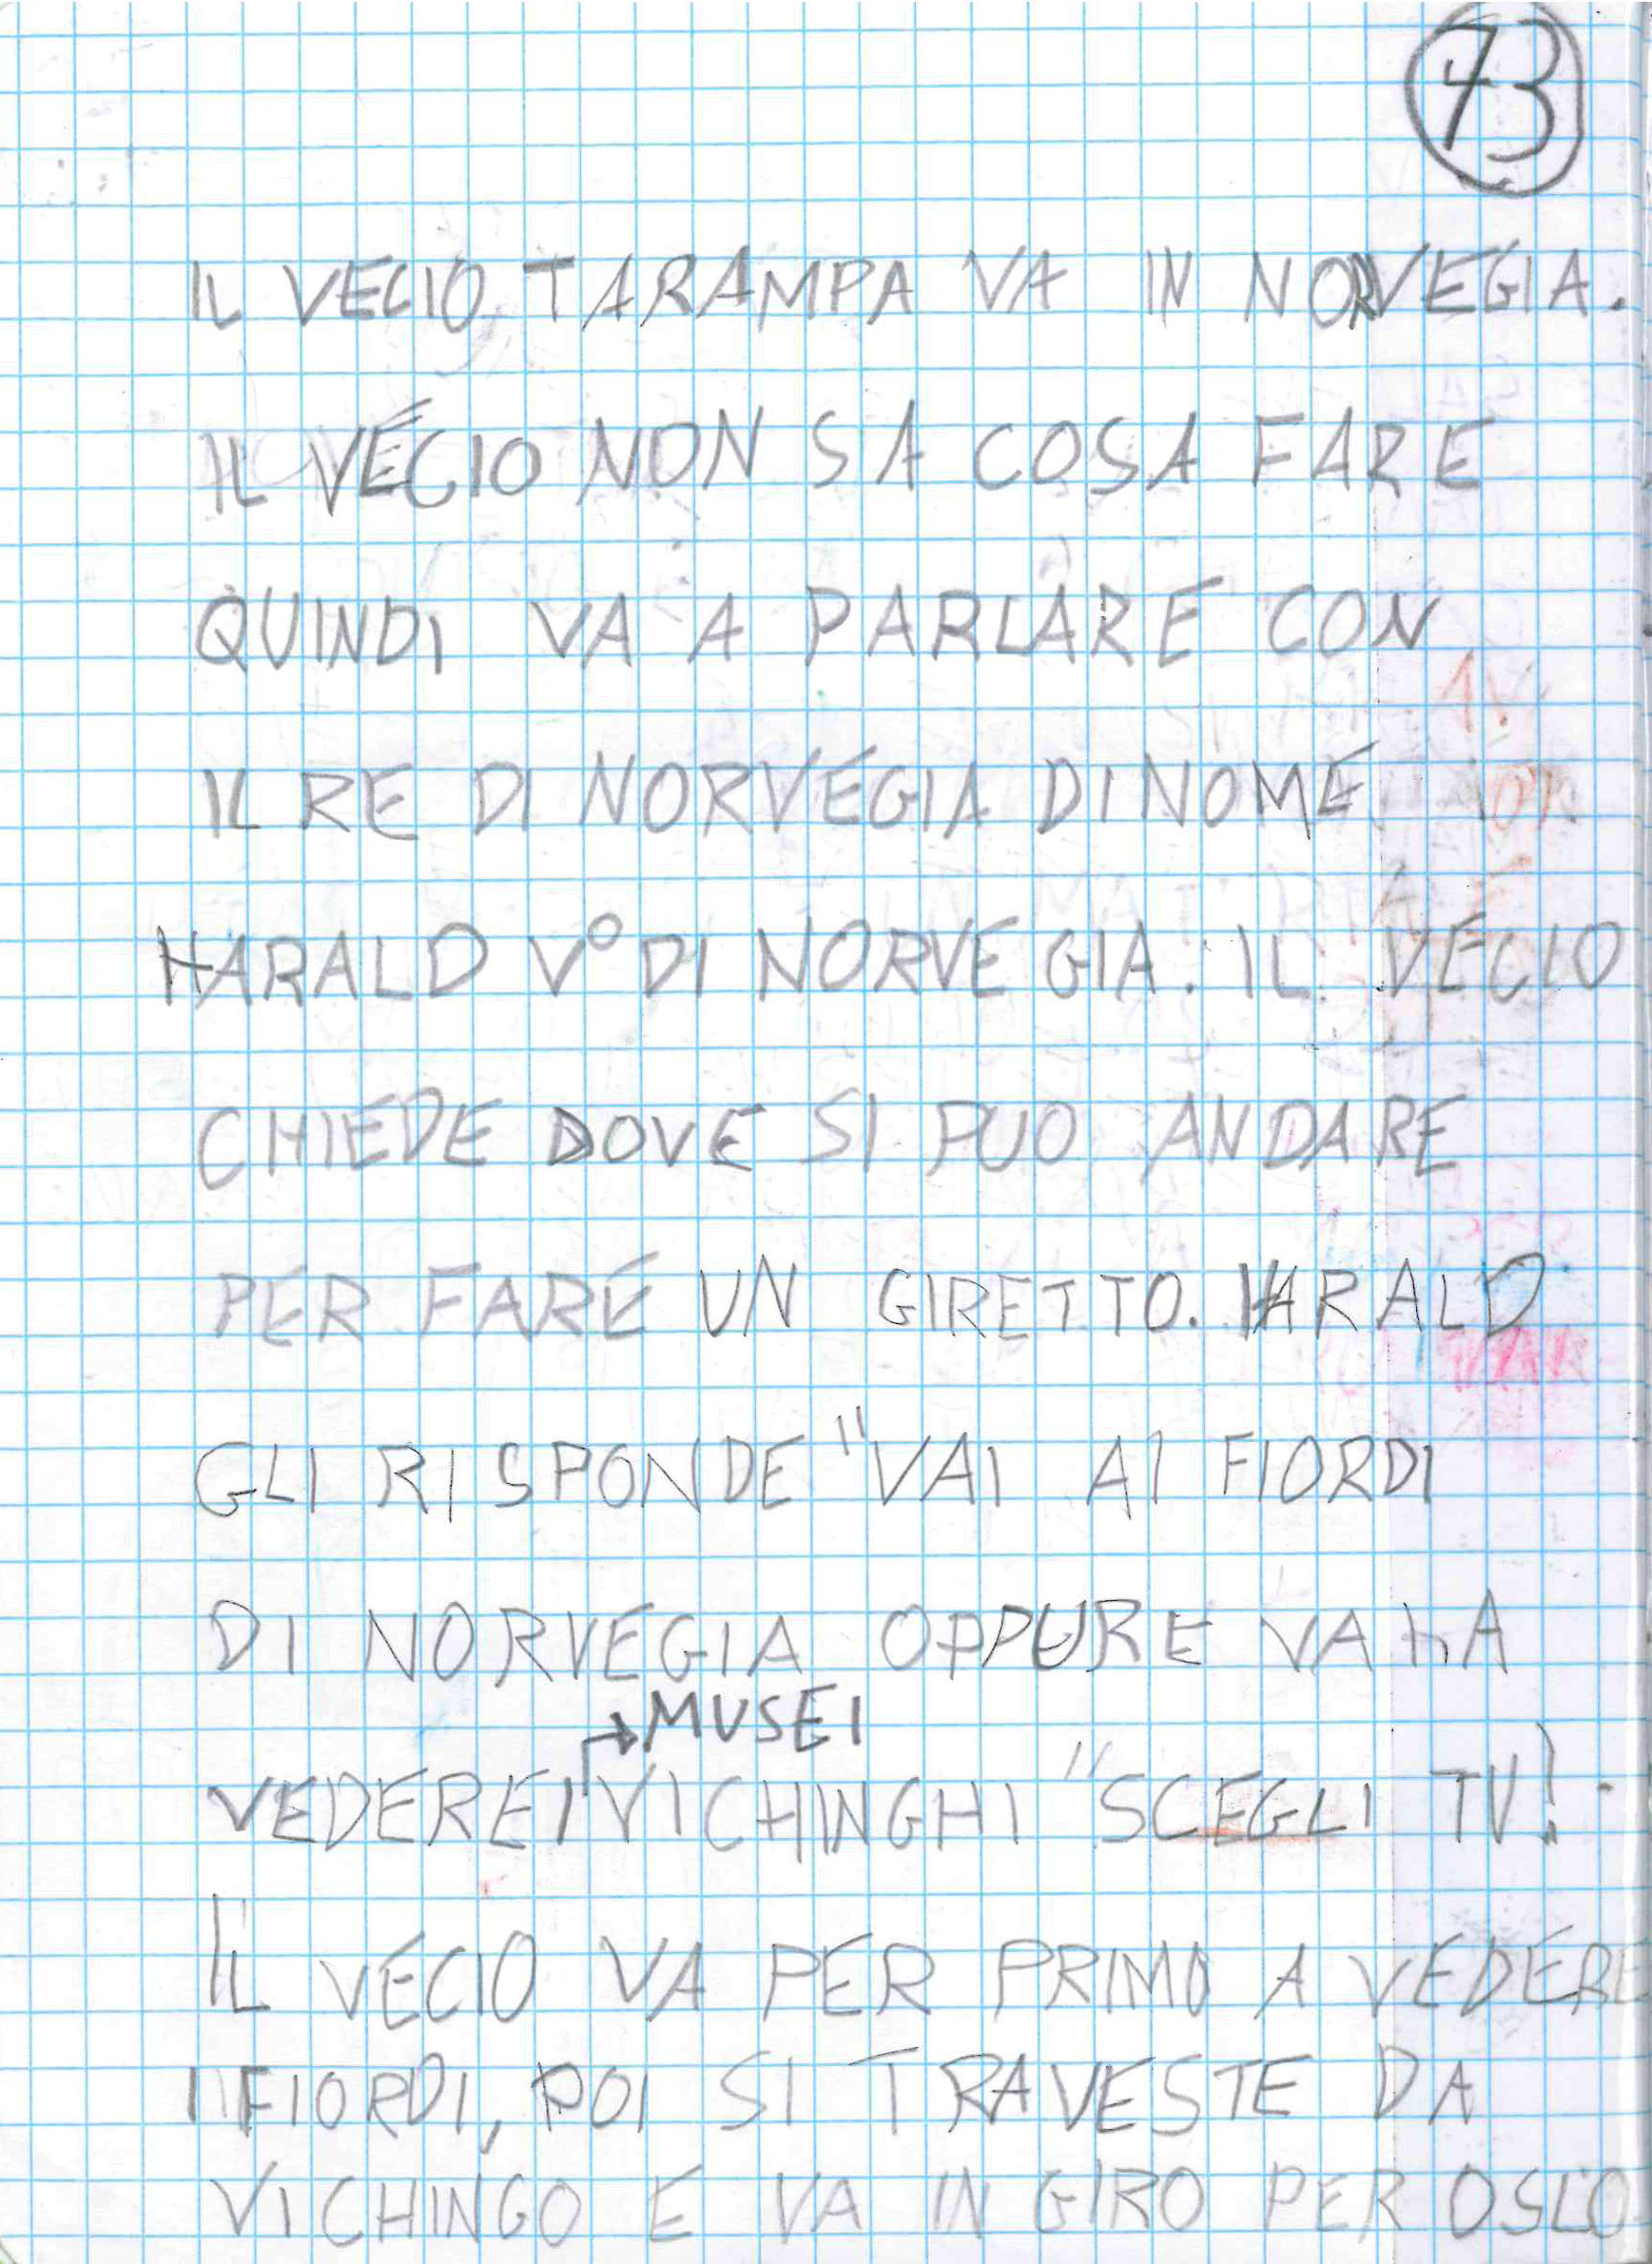 73
IL VECIO TARAMPA VA IN NORVEGIA.
IL VECIO NON SA COSA FARE
QUINDI VA A PARLARE CON
IL RE DI NORVEGIA DI NOME
HARALD V° DI NORVEGIA. IL VECIO
CHIEDE DOVE SI PUO ANDARE
PER FARE UN GIRETTO. HARALD
GLI RISPONDE "VAI AI FIORDI
DI NORVEGIA OPPURE VAI A
MUSEI
VEDERE I VICHINGHI "SCEGLI TU!
IL VECIO VA PER PRIMO A VEDERE
I FIORDI, POI SI TRAVESTE DA
VICHINGO E VA IN GIRO PER OSLO